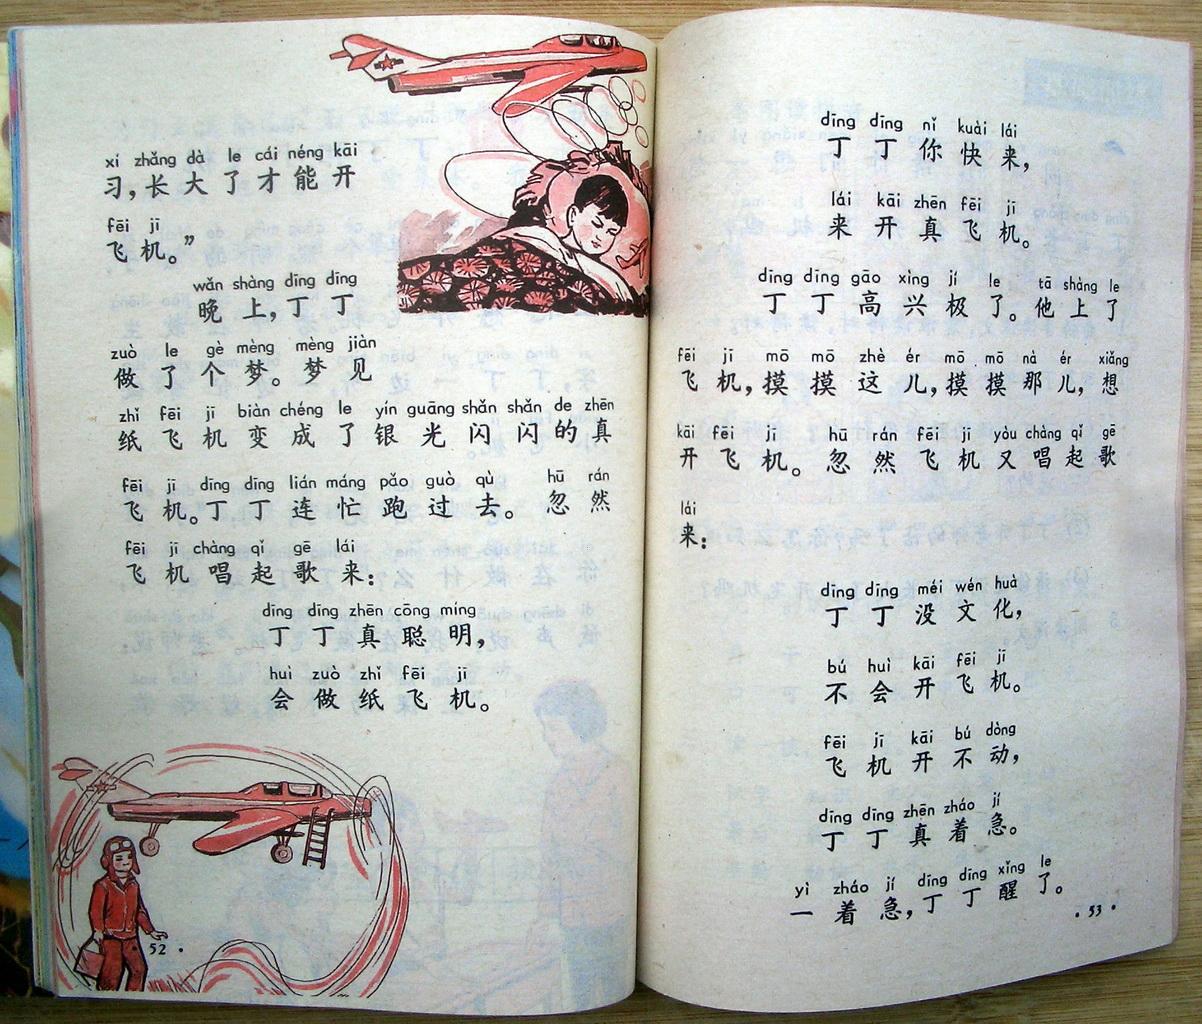 xí zhǎng dà le cái néng kāi
习，长大了才能开
fēi jī
飞机。”
wǎn shàng dīng dīng
晚上，丁丁
zuò le gè mèng mèng jiàn
做了个梦。梦见
zhǐ fēi jī biàn chéng le yín guāng shǎn shǎn de zhēn
纸飞机变成了银光闪闪的真
fēi jī dīng dīng lián máng pǎo guò qù hū rán
飞机。丁丁连忙跑过去。忽然
fēi jī chàng qǐ gē lái
飞机唱起歌来：
dīng dīng zhēn cōng míng
丁丁真聪明，
huì zuò zhǐ fēi jī
会做纸飞机。
52
dīng dīng nǐ kuài lái
丁丁你快来，
lái kāi zhēn fēi jī
来开真飞机。
dīng dīng gāo xìng jí le tā shàng le
丁丁高兴极了。他上了
fēi jī mō mō zhè ér mō mō nà ér xiǎng
飞机，摸摸这儿，摸摸那儿，想
kāi fēi jī hū rán fēi jī yòu chàng qǐ gē
开飞机。忽然飞机又唱起歌
lái
来：
dīng dīng méi wén huà
丁丁没文化，
bú huì kāi fēi jī
不会开飞机。
fēi jī kāi bú dòng
飞机开不动，
dīng dīng zhēn zháo jí
丁丁真着急。
yì zháo jí dīng dīng xǐng le
一着急，丁丁醒了。
·53·